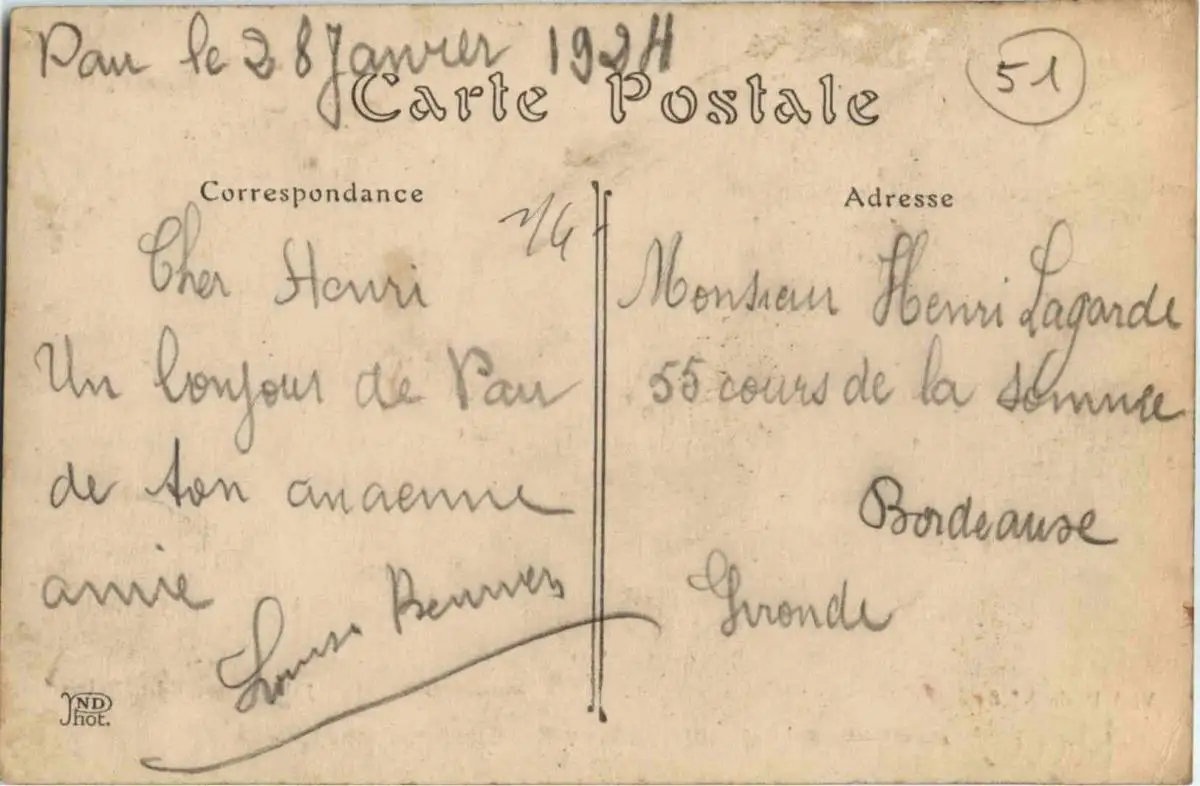 Pau le 28 Janvier 1924
51
Carte Postale
Correspondance
Cher Henri
Un bonjour de Pau
de ton ancienne
amie
Louise
Adresse
Monsieur Henri Lagarde
55 cours de la somme
Bordeause
Gironde
ND
Phot.